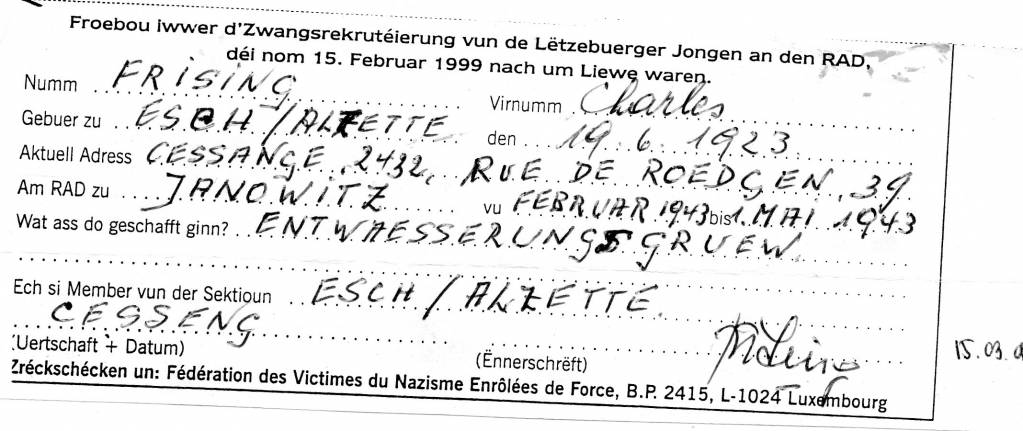 Froebou iwwer d'Zwangsrekrutéierung vun de Lëtzebuerger Jongen an den RAD,
déi nom 15. Februar 1999 nach um Liewe waren.
Numm FRISING Virnumm Charles
Gebuer zu ESCH/ALZETTE den 19.6.1923
Aktuell Adress CESSANGE, 2432, RUE DE ROEDGEN, 39
Am RAD zu JANOWITZ vu FEBRUAR 1943 bis 1. MAI 1943
Wat ass do geschafft ginn? ENTWAESSERUNGSGRUEW
Ech si Member vun der Sektioun ESCH/ALZETTE
CESSENG
(Uertschaft + Datum) (Ënnerschrëft)
15.03.
Zréckschécken un: Fédération des Victimes du Nazisme Enrôlées de Force, B.P. 2415, L-1024 Luxembourg